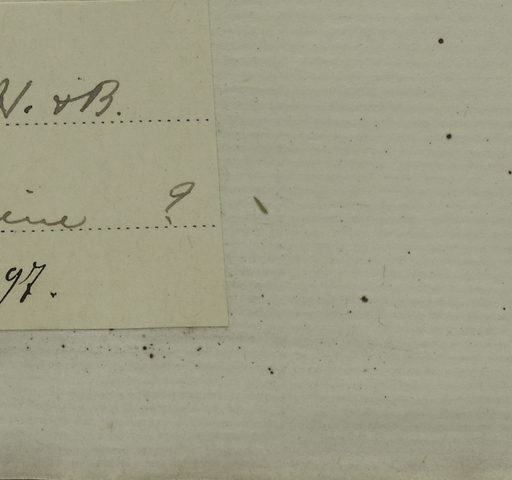 W. & B.
ine ?
97.